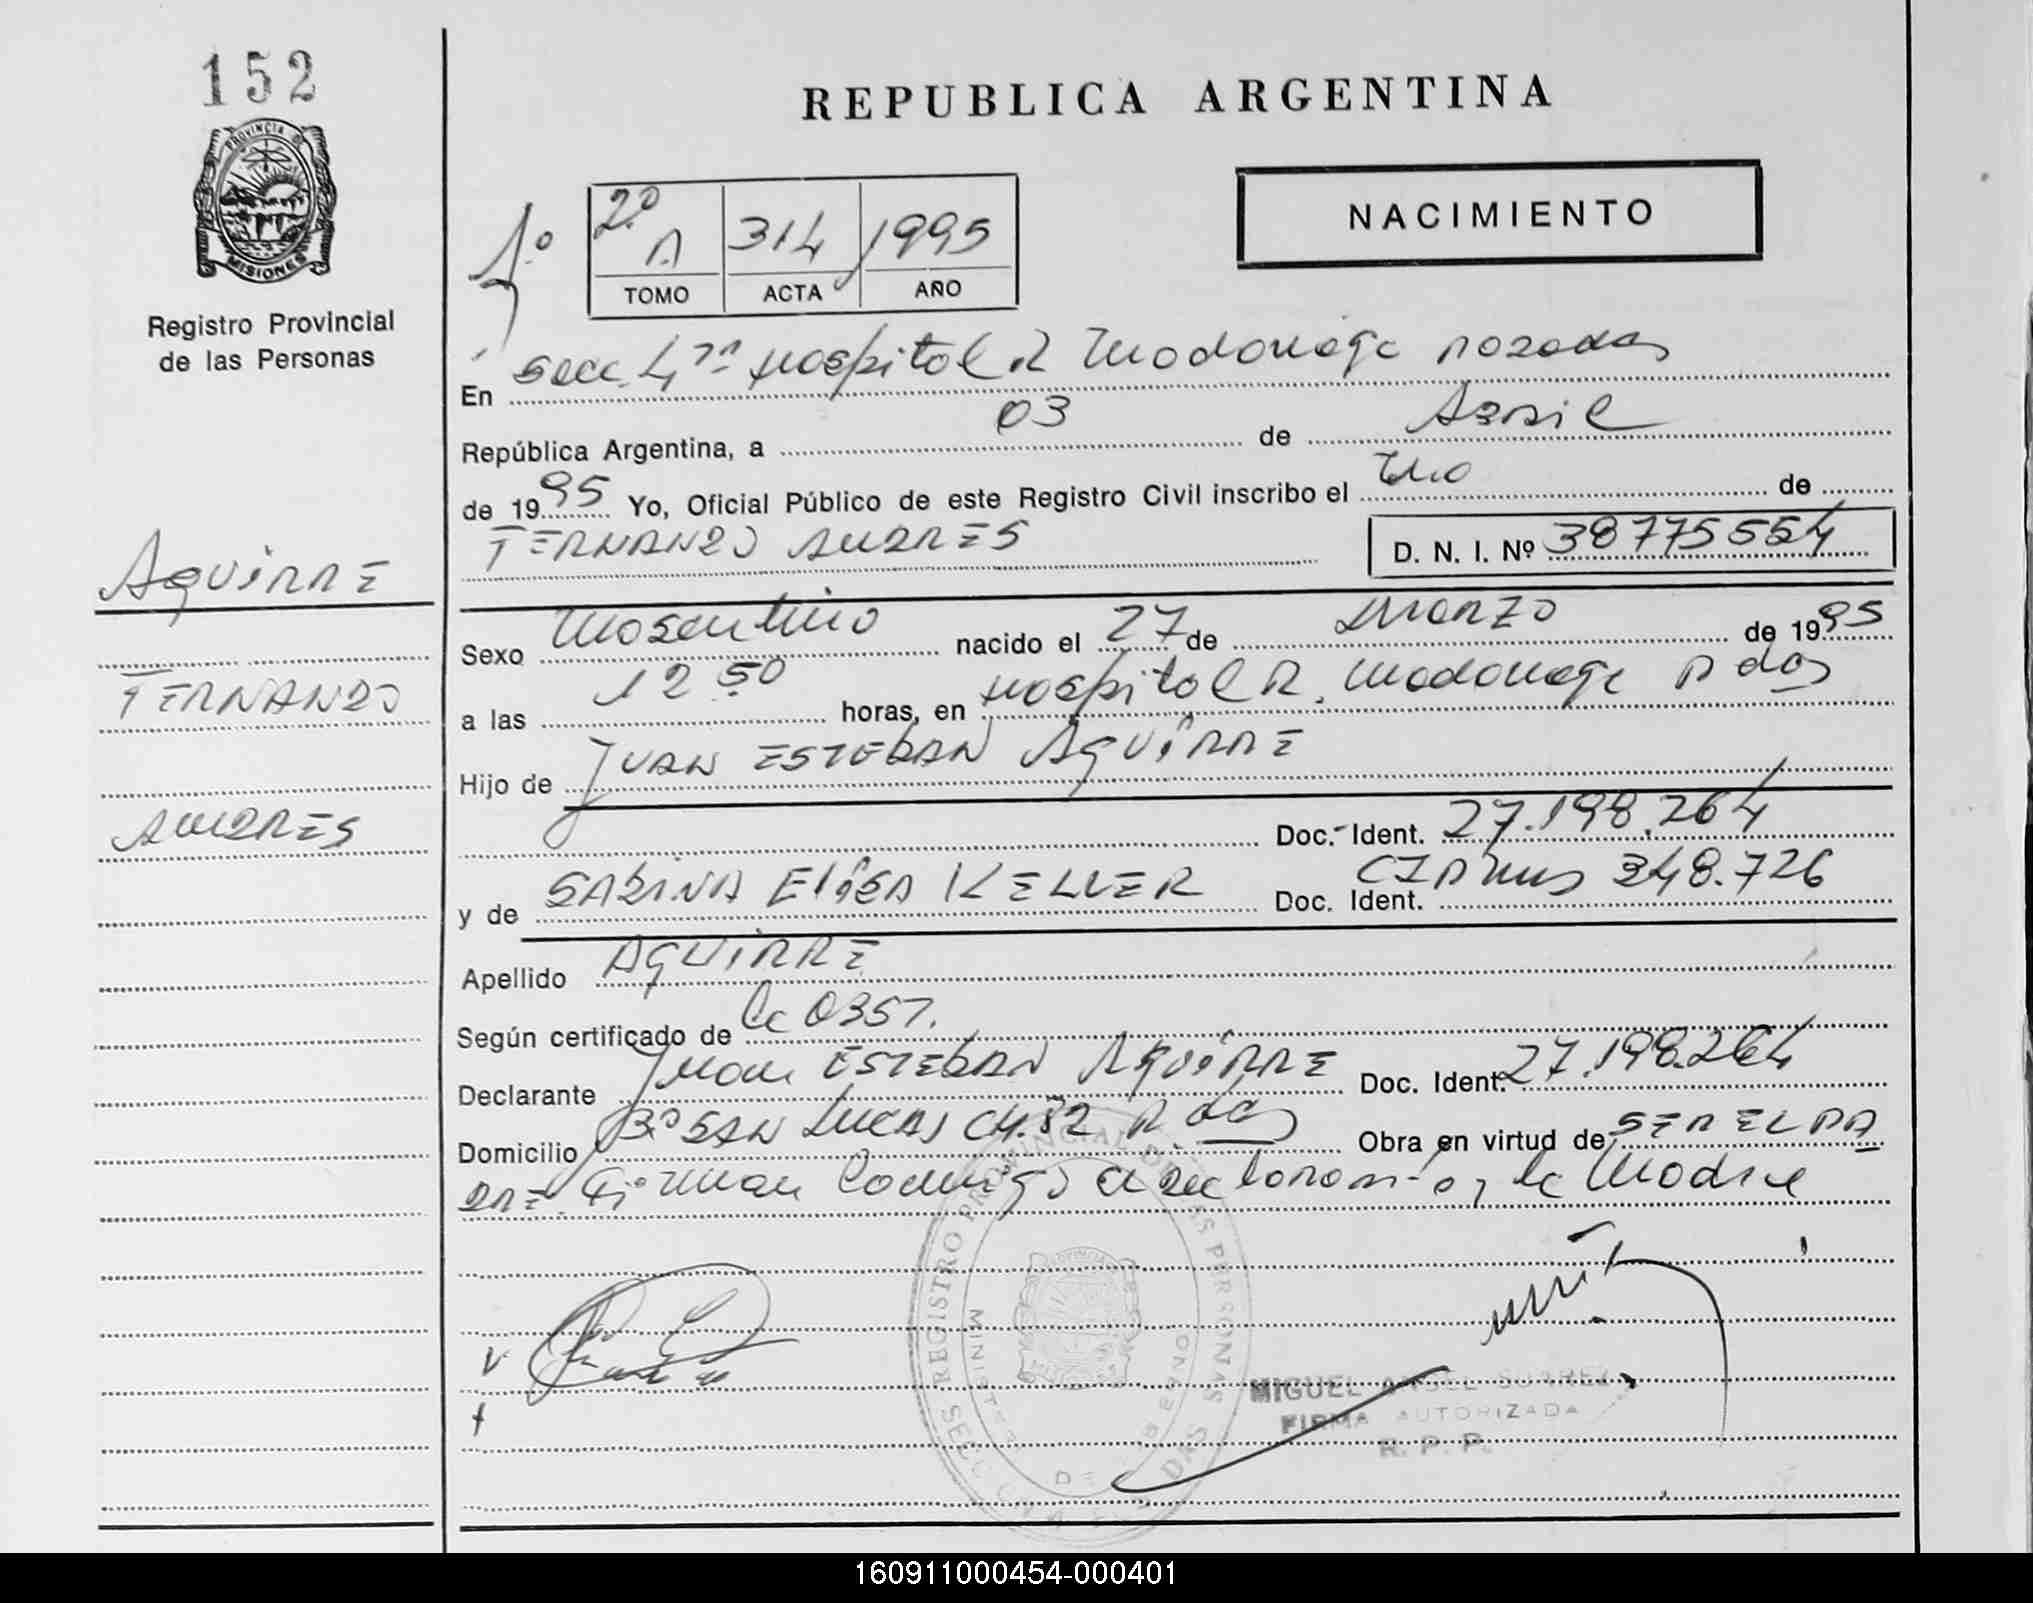 152
REPUBLICA ARGENTINA
PROVINCIA DE
MISIONES
Registro Provincial
de las Personas
NACIMIENTO
1º
2º A 314 1995
TOMO ACTA AÑO
En Secc 4ta Hospital R Madariaga Posadas
República Argentina, a 03 de Abril
de 1995 Yo, Oficial Público de este Registro Civil inscribo el Nac de
FERNANDO ANDRES D. N. I. Nº 38775554
AGUIRRE
FERNANDO
ANDRES
Sexo Masculino nacido el 27 de Marzo de 1995
a las 12 50 horas, en Hospital R. Madariaga Pdas
Hijo de JUAN ESTEBAN AGUIRRE
Doc. Ident. 27.198.264
y de SABINA ELISA KELLER Doc. Ident. CIPMns 348.726
Apellido AGUIRRE
Según certificado de Lc 0357.
Declarante Juan ESTEBAN AGUIRRE Doc. Ident. 27.198.264
Domicilio Bº SAN LUCAS CH. 82 Pdas Obra en virtud de SER EL PA
DRE. Firman Conmigo el declarante y la Madre
REGISTRO PROVINCIAL DE LAS PERSONAS
MIGUEL ANGEL SUAREZ
FIRMA AUTORIZADA
R. P. P.
160911000454-000401